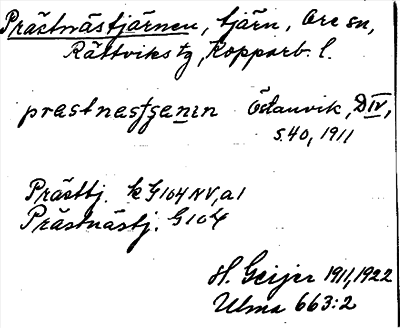 Prästnästjärnen, tjärn, Ore sn,
Rättviks tg, Kopparb. l.
prastnastsenin Östanvik, D IV,
s. 40, 1911
Prästtj. k G104 NV, a 1
Prästnästj. G104
H. Geijer 1911, 1922
Ulma 663:2